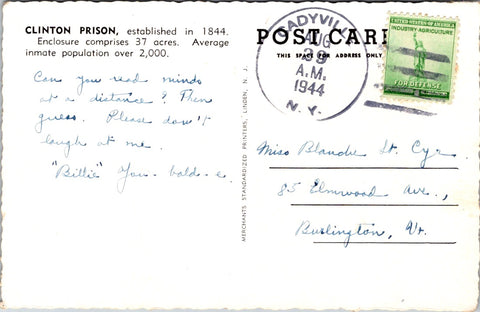 CLINTON PRISON, established in 1844.
Enclosure comprises 37 acres. Average
inmate population over 2,000.
Can you read minds
at a distance? Then
guess. Please don't
laugh at me.
"Billie" You - bald - e.
MERCHANTS STANDARDIZED PRINTERS, LINDEN, N. J.
POST CARD
THIS SPACE FOR ADDRESS ONLY
ADYVILL
AUG
A.M.
1944
N.Y.
UNITED STATES OF AMERICA
INDUSTRY-AGRICULTURE
FOR DEFENSE
Miss Blanche St. Cyr.
85 Elmwood Ave.,
Burlington, Vt.